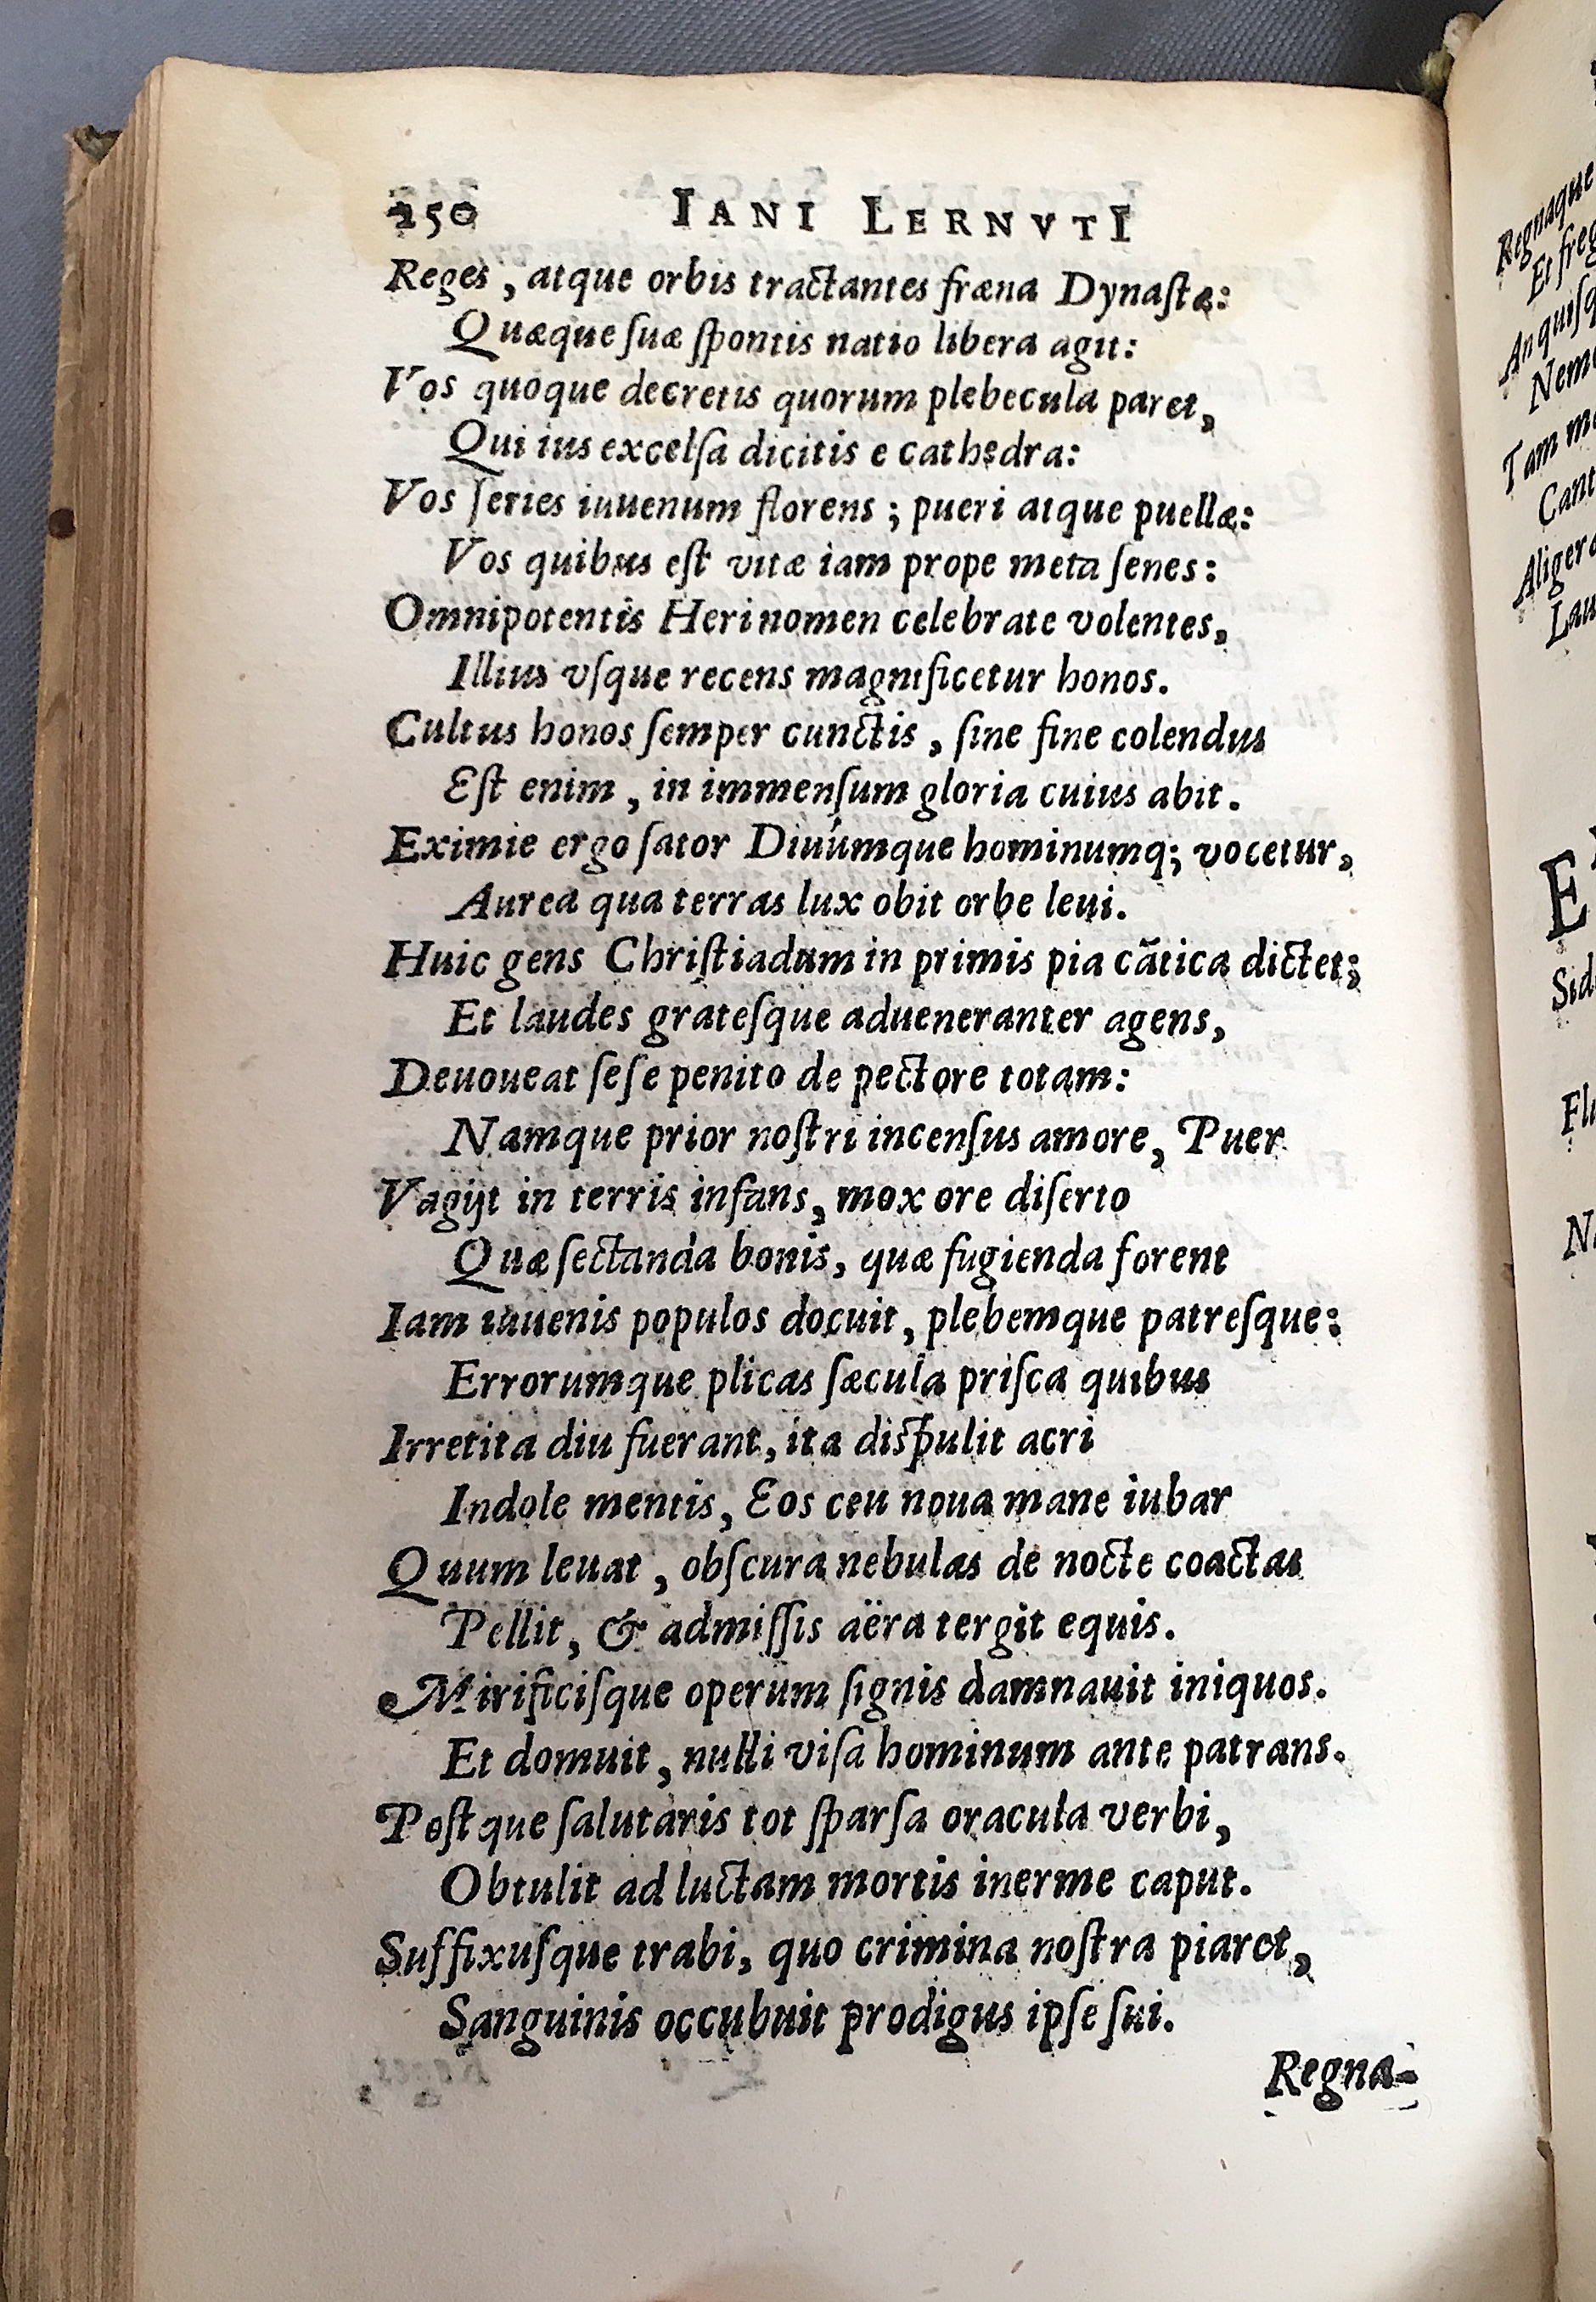 250 IANI LERNVTI
Reges, atque orbis tractantes fræna Dynaſtæ:
Quæque ſuæ ſpontis natio libera agit:
Vos quoque decretis quorum plebecula paret,
Qui ius excelſa dicitis e cathedra:
Vos ſeries iuuenum florens; pueri atque puellæ:
Vos quibus eſt vitæ iam prope meta ſenes:
Omnipotentis Heri nomen celebrate volentes,
Illius vſque recens magnificetur honos.
Cultus honos ſemper cunctis, ſine fine colendus
Eſt enim, in immenſum gloria cuius abit.
Eximie ergo ſator Diuúmque hominumq; vocetur,
Aurea qua terras lux obit orbe leui.
Huic gens Chriſtiadum in primis pia cãtica dictet;
Et laudes grateſque adueneranter agens,
Deuoueat ſeſe penito de pectore totam:
Namque prior noſtri incenſus amore, Puer
Vagijt in terris infans, mox ore diſerto
Quæ ſectanda bonis, quæ fugienda forent
Iam iuuenis populos docuit, plebemque patreſque:
Errorumque plicas ſæcula priſca quibus
Irretita diu fuerant, ita diſpulit acri
Indole mentis, Eos ceu noua mane iubar
Quum leuat, obſcura nebulas de nocte coactas
Pellit, & admiſſis aëra tergit equis.
Mirificiſque operum ſignis damnauit iniquos.
Et domuit, nulli viſa hominum ante patrans.
Poſtque ſalutaris tot ſparſa oracula verbi,
Obtulit ad luctam mortis inerme caput.
Suffixuſque trabi, quo crimina noſtra piaret,
Sanguinis occubuit prodigus ipſe ſui.
Regna-
Regnaque
Et freg
An quiſq
Nemo
Tam m
Cant
Aligera
Lau
E
Sid
Fl
N